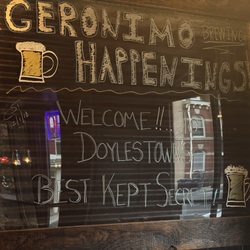 GERONIMO BREWING
HAPPENINGS
WELCOME!!... TO
DOYLESTOWN'S
BEST KEPT SECRET!